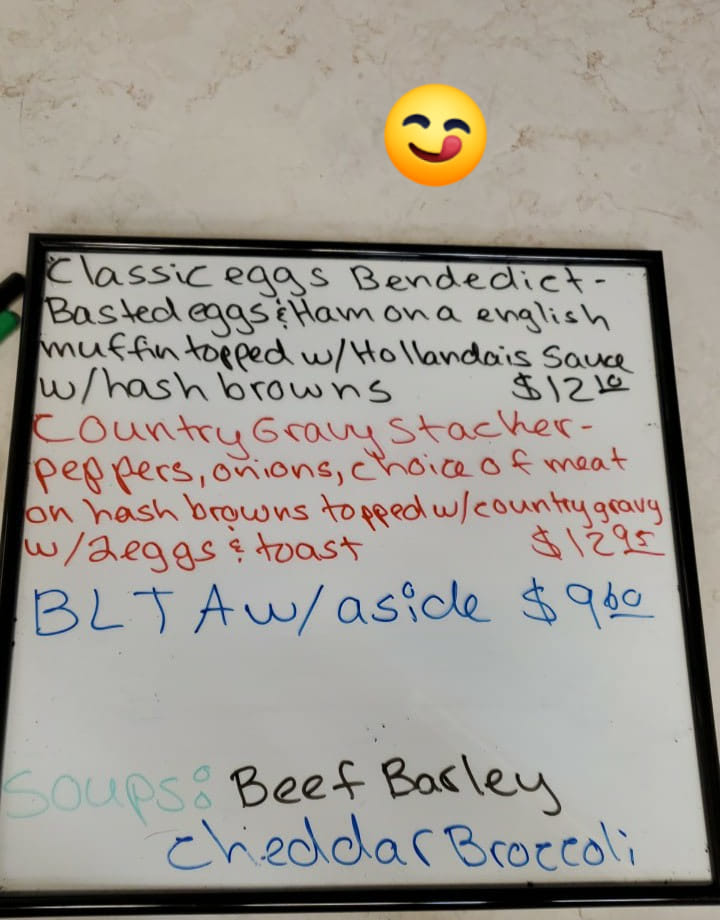 Classic eggs Bendedict-
Basted eggs & Ham on a english
muffin topped w/Hollandais Sauce
w/hash browns $12 10
Country Gravy Stacker-
peppers, onions, choice of meat
on hash browns topped w/country gravy
w/2eggs & toast $12 95
BLTA w/ aside $9 60
Soups: Beef Barley
Cheddar Broccoli